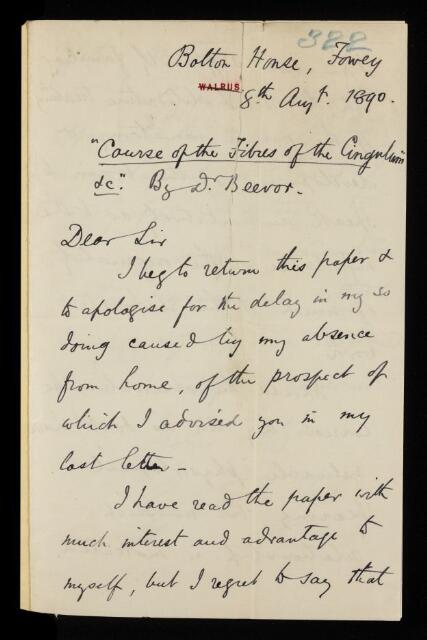 382
Bolton House, Fowey
WALRUS
8th Augt. 1890.
"Course of the Fibres of the Cingulum
&c." By Dr Beevor.
Dear Sir
I beg to return this paper &
to apologise for the delay in my so
doing caused by my absence
from home, of the prospect of
which I advised you in my
last letter –
I have read the paper with
much interest and advantage to
myself, but I regret to say that